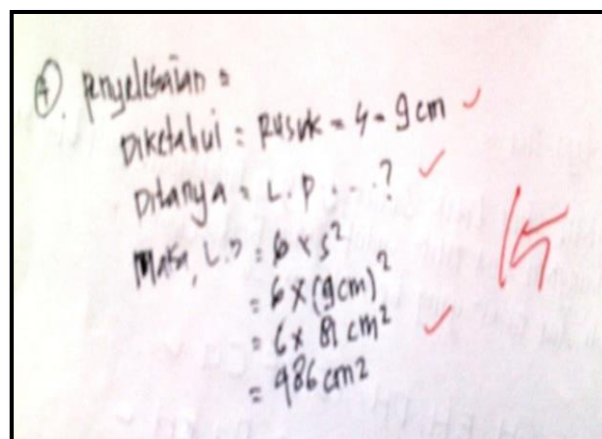 ④. Penyelesaian =
Diketahui = Rusuk = s = 9 cm
Ditanya = L.P ...?
Maka, L.P = 6 x s²
= 6 x (9 cm)²
= 6 x 81 cm²
= 986 cm²
15